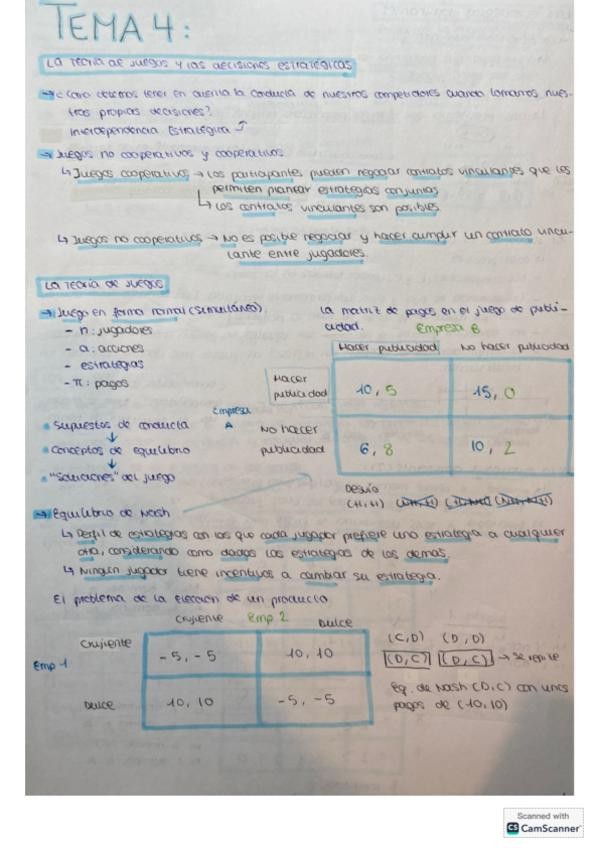 TEMA 4:
La teoría de juegos y las decisiones estratégicas
→ ¿Cómo debemos tener en cuenta la conducta de nuestros competidores cuando tomamos nues-
tras propias decisiones?
Interdependencia Estratégica
→ Juegos no cooperativos y cooperativos
↳ Juegos cooperativos → Los participantes pueden negociar contratos vinculantes que les
permiten plantear estrategias conjuntas
↳ Los contratos vinculantes son posibles.
↳ Juegos no cooperativos → No es posible negociar y hacer cumplir un contrato vincu-
lante entre jugadores.
La teoría de juegos
→ Juego en forma normal (simultáneo).
- n: jugadores
- a: acciones
- estrategias
- π: pagos
• Supuestos de conducta
↓
• Conceptos de equilibrio
↓
• "Soluciones" del juego
La matriz de pagos en el juego de publi-
cidad.
Empresa B
Hacer publicidad No hacer publicidad
Hacer
publicidad 10, 5 15, 0
Empresa
A
No hacer
publicidad 6, 8 10, 2
Desvío
(H, H)
→ Equilibrio de Nash
↳ Perfil de estrategias con los que cada jugador prefiere una estrategia a cualquier
otra, considerando como dados las estrategias de los demás.
↳ Ningún jugador tiene incentivos a cambiar su estrategia.
El problema de la elección de un producto
Crujiente Emp 2 Dulce
Crujiente -5, -5 10, 10
Emp 1
Dulce 10, 10 -5, -5
(C, D) (D, D)
(D, C) (D, C) → se repite
Eq. de Nash (D, C) con unos
pagos de (10, 10)
Scanned with
CS CamScanner